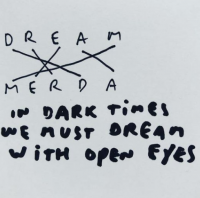 D R E A M
M E R D A
IN DARK TIMES
WE MUST DREAM
WITH OPEN EYES